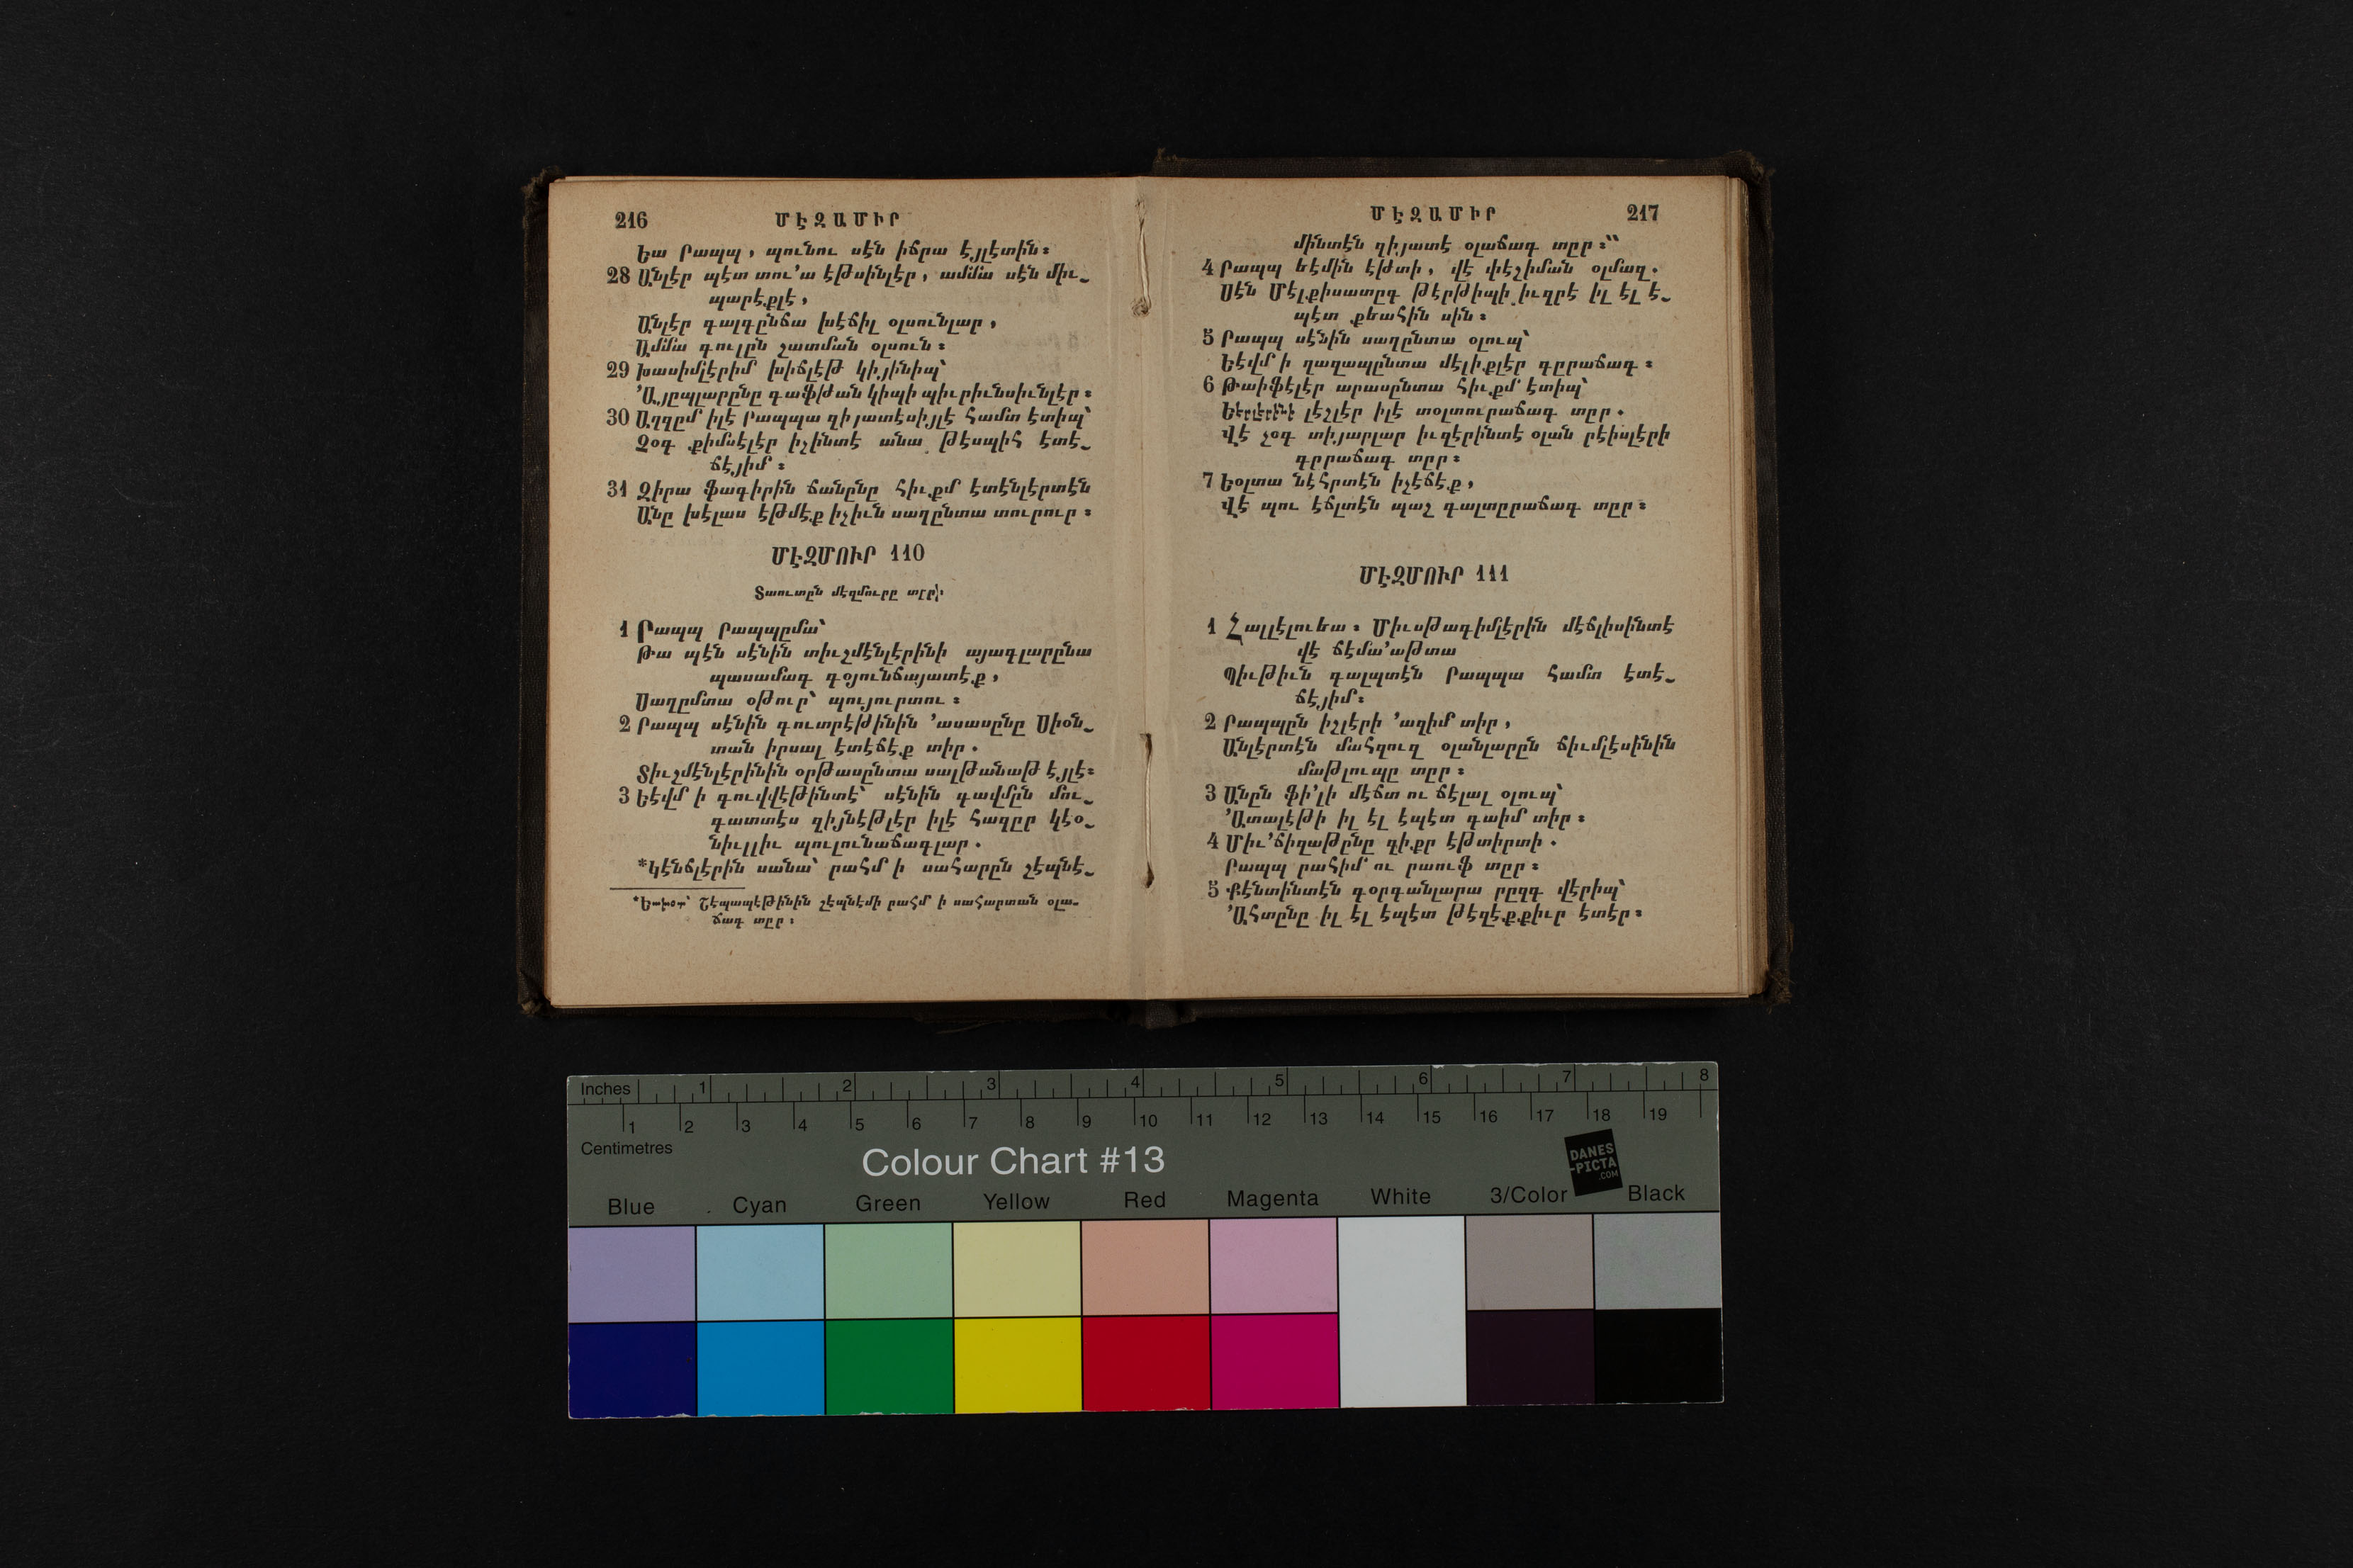 216 ՄԷԶԱՄԻՐ
Եա Րապպ, պունու սէն իճրա էյլէտին։
28 Անլէր պէտ տու՚ա էթսինլէր, ամմա սէն միւ֊
պարէքլէ,
Անլէր գալգընճա խէճիլ օլսունլար,
Ամմա գուլըն չատման օլսուն։
29 Խասիմլէրիմ խիճլէթ կիյինիպ՝
՚Այըպլարընը գաֆժան կիպի պիւրիւնսիւնլէր։
30 Աղզըմ իլէ Րապպա զիյատէսիյլէ համտ էտիպ՝
Չօգ քիմսէլէր իչինտէ անա թէսպիհ էտէ֊
ճէյիմ։
31 Զիրա ֆագիրին ճանընը հիւքմ էտէնլէրտէն
Անը խէլաս էթմէք իչիւն սաղընտա տուրուր։
ՄԷԶՄՈՒՐ 110
Տաուտըն մէզմուրը տըր։
1 Րապպ Րապպըմա՝
Թա պէն սէնին տիւշմէնլէրինի այագլարընա
պասամագ գօյունճայատէք,
Սաղըմտա օթուր՝ պույուրտու։
2 Րապպ սէնին գուտրէթինին ՚ասասընը Սիօն֊
տան իրսալ էտէճէք տիր.
Տիւշմէնլէրինին օրթասընտա սալթանաթ էյլէ։
3 Եէվմ ի գուվվէթինտէ՝ սէնին գավմըն մու֊
գատտէս զիյնէթլէր իլէ հազըր կէօ֊
նիւլլիւ պուլունաճագլար.
*Կէնճլէրին սանա՝ րահմ ի սահարըն չէպնէ֊
*Եախօտ՝ Շէպապէթինին չէպնէմի րահմ ի սահարտան օլա֊
ճագ տըր։
ՄԷԶԱՄԻՐ 217
մինտէն զիյատէ օլաճագ տըր։“
4 Րապպ եէմին էժտի, վէ փէշիման օլմազ.
Սէն Մէլքիսատըգ թէրթիպի իւզրէ իլ էլ է֊
պէտ քեահին սին։
5 Րապպ սէնին սաղընտա օլուպ՝
Եէվմ ի ղազապընտա մէլիքլէր գըրաճագ։
6 Թաիֆէլէր արասընտա հիւքմ էտիպ՝
Եէրլէրինի լէշլէր իլէ տօլտուրաճագ տըր.
Վէ չօգ տիյարլար իւզէրինտէ օլան րէիսլէրի
գըրաճագ տըր։
7 Եօլտա նէհրտէն իչէճէք,
Վէ պու էճլտէն պաշ գալտըրաճագ տըր։
ՄԷԶՄՈՒՐ 111
1 Հալլէլուեա։ Միւսթագիմլէրին մէճլիսինտէ
վէ ճէմա՚աթտա
Պիւթիւն գալպտէն Րապպա համտ էտէ֊
ճէյիմ։
2 Րապպըն իշլէրի ՚ազիմ տիր,
Անլէրտէն մահզուզ օլանլարըն ճիւմլէսինին
մաթլուպը տըր։
3 Անըն ֆի՚լի մէճտ ու ճէլալ օլուպ՝
՚Ատալէթի իլ էլ էպէտ գաիմ տիր։
4 Միւ՚ճիզաթընը զիքր էթտիրտի.
Րապպ րահիմ ու րաուֆ տըր։
5 Քէնտինտէն գօրգանլարա րըզգ վէրիպ՝
՚Ահտընը իլ էլ էպէտ թէզէքքիւր էտէր։
Inches 1 2 3 4 5 6 7 8
1 2 3 4 5 6 7 8 9 10 11 12 13 14 15 16 17 18 19
Centimetres
Colour Chart #13
DANES
-PICTA
.COM
Blue Cyan Green Yellow Red Magenta White 3/Color Black